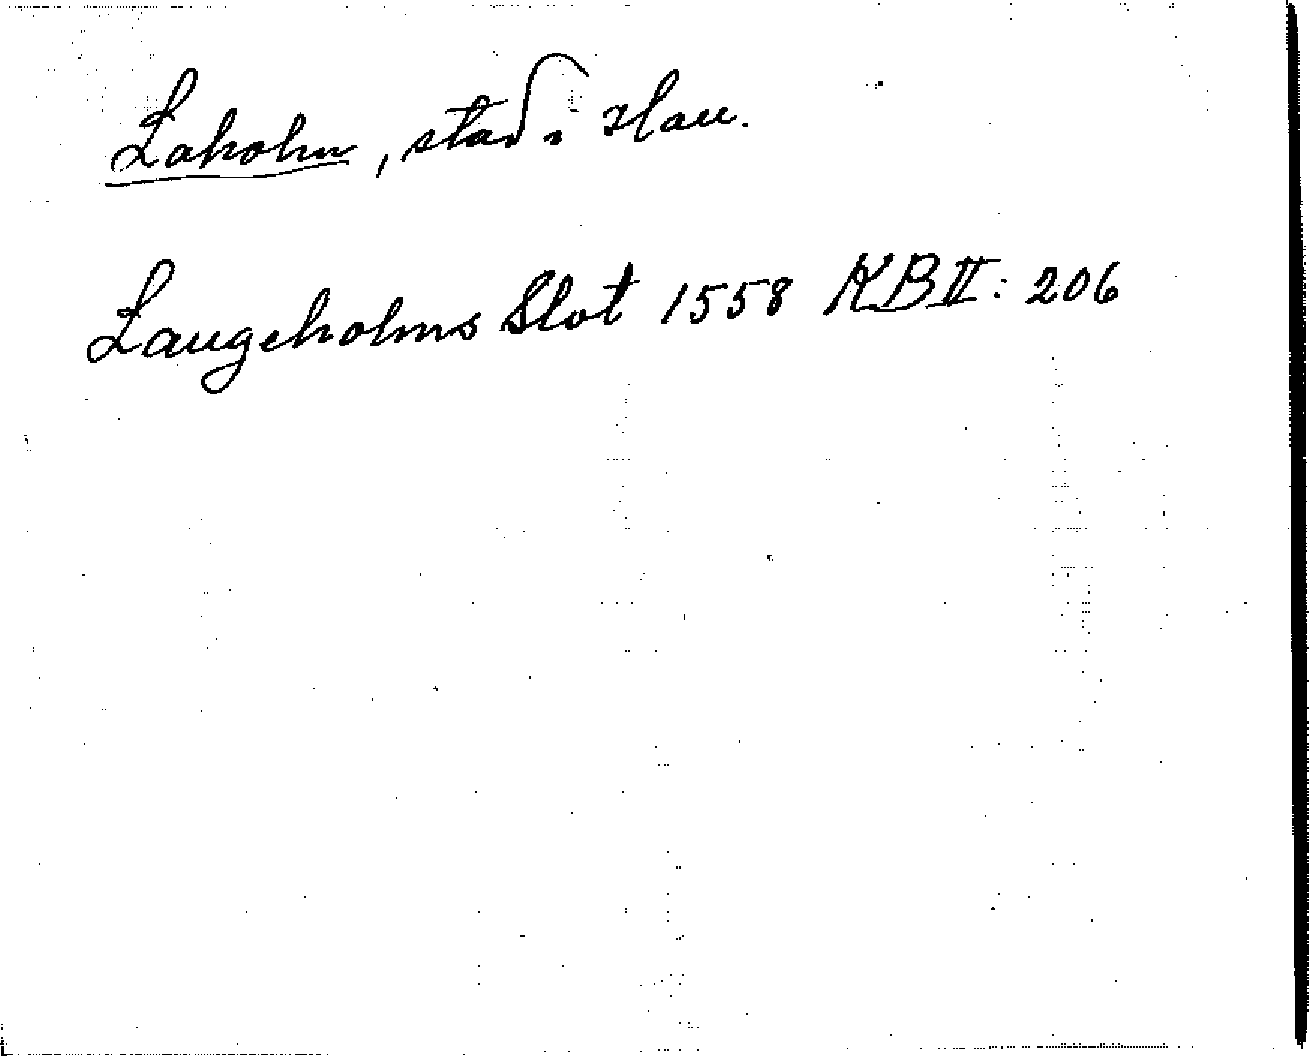 Laholm, stad i Hall.
Laugeholms Slot 1558 KB II: 206